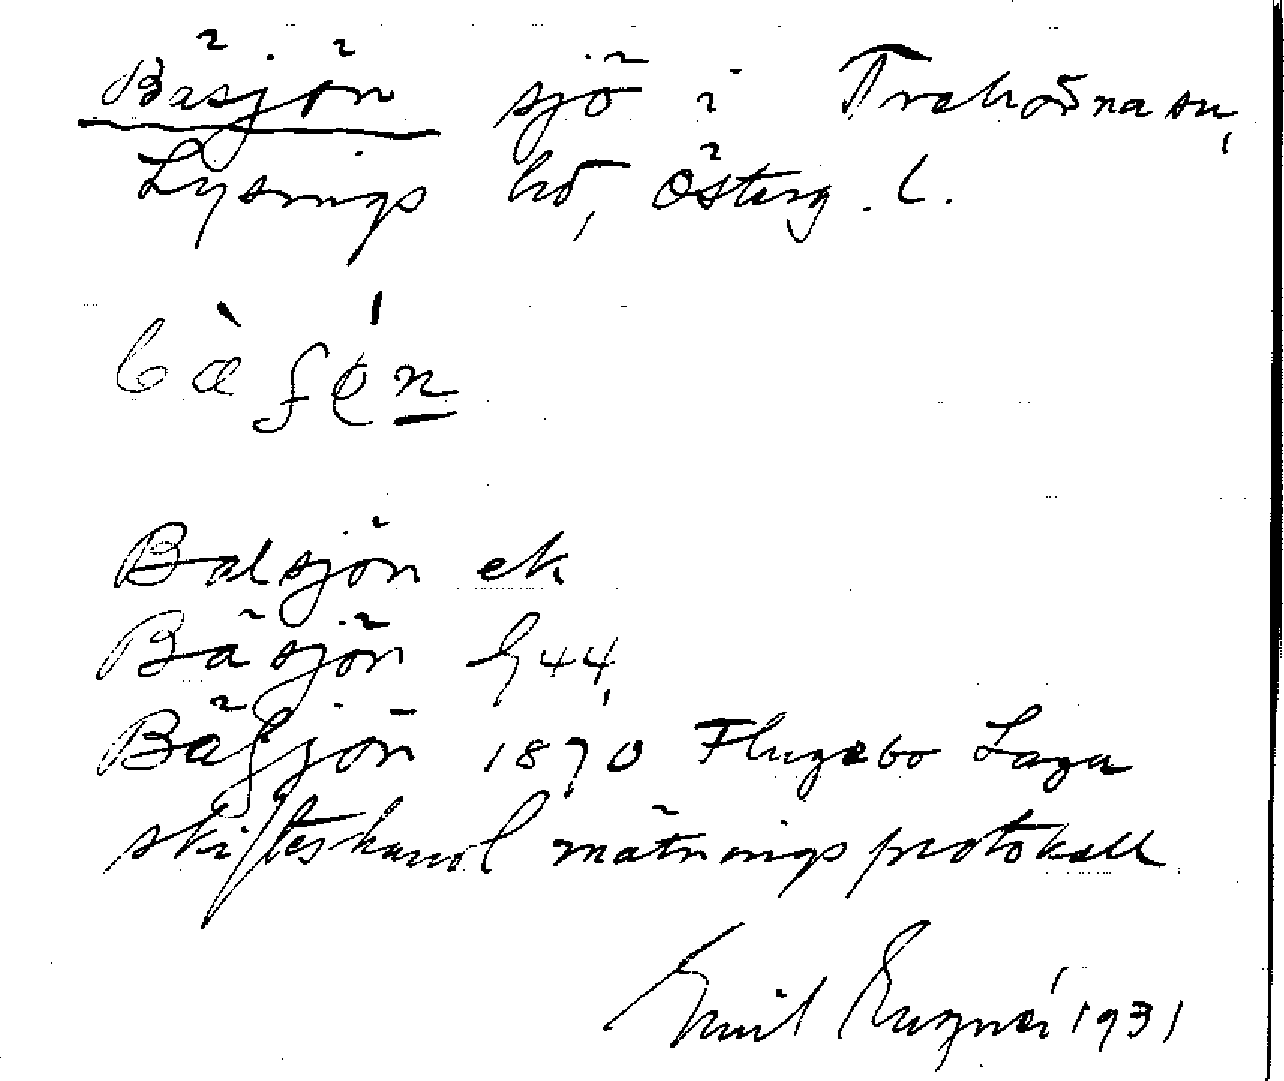 Bäsjön sjö i Trehörna sn,
Lysings hd, Österg. l.
bæ̀ʃǿn
Balsjön ek
Bäsjön h 44,
Bäfjön 1870 Flugebo Laga
skifteshandl mätningsprotokoll
Emil 1931